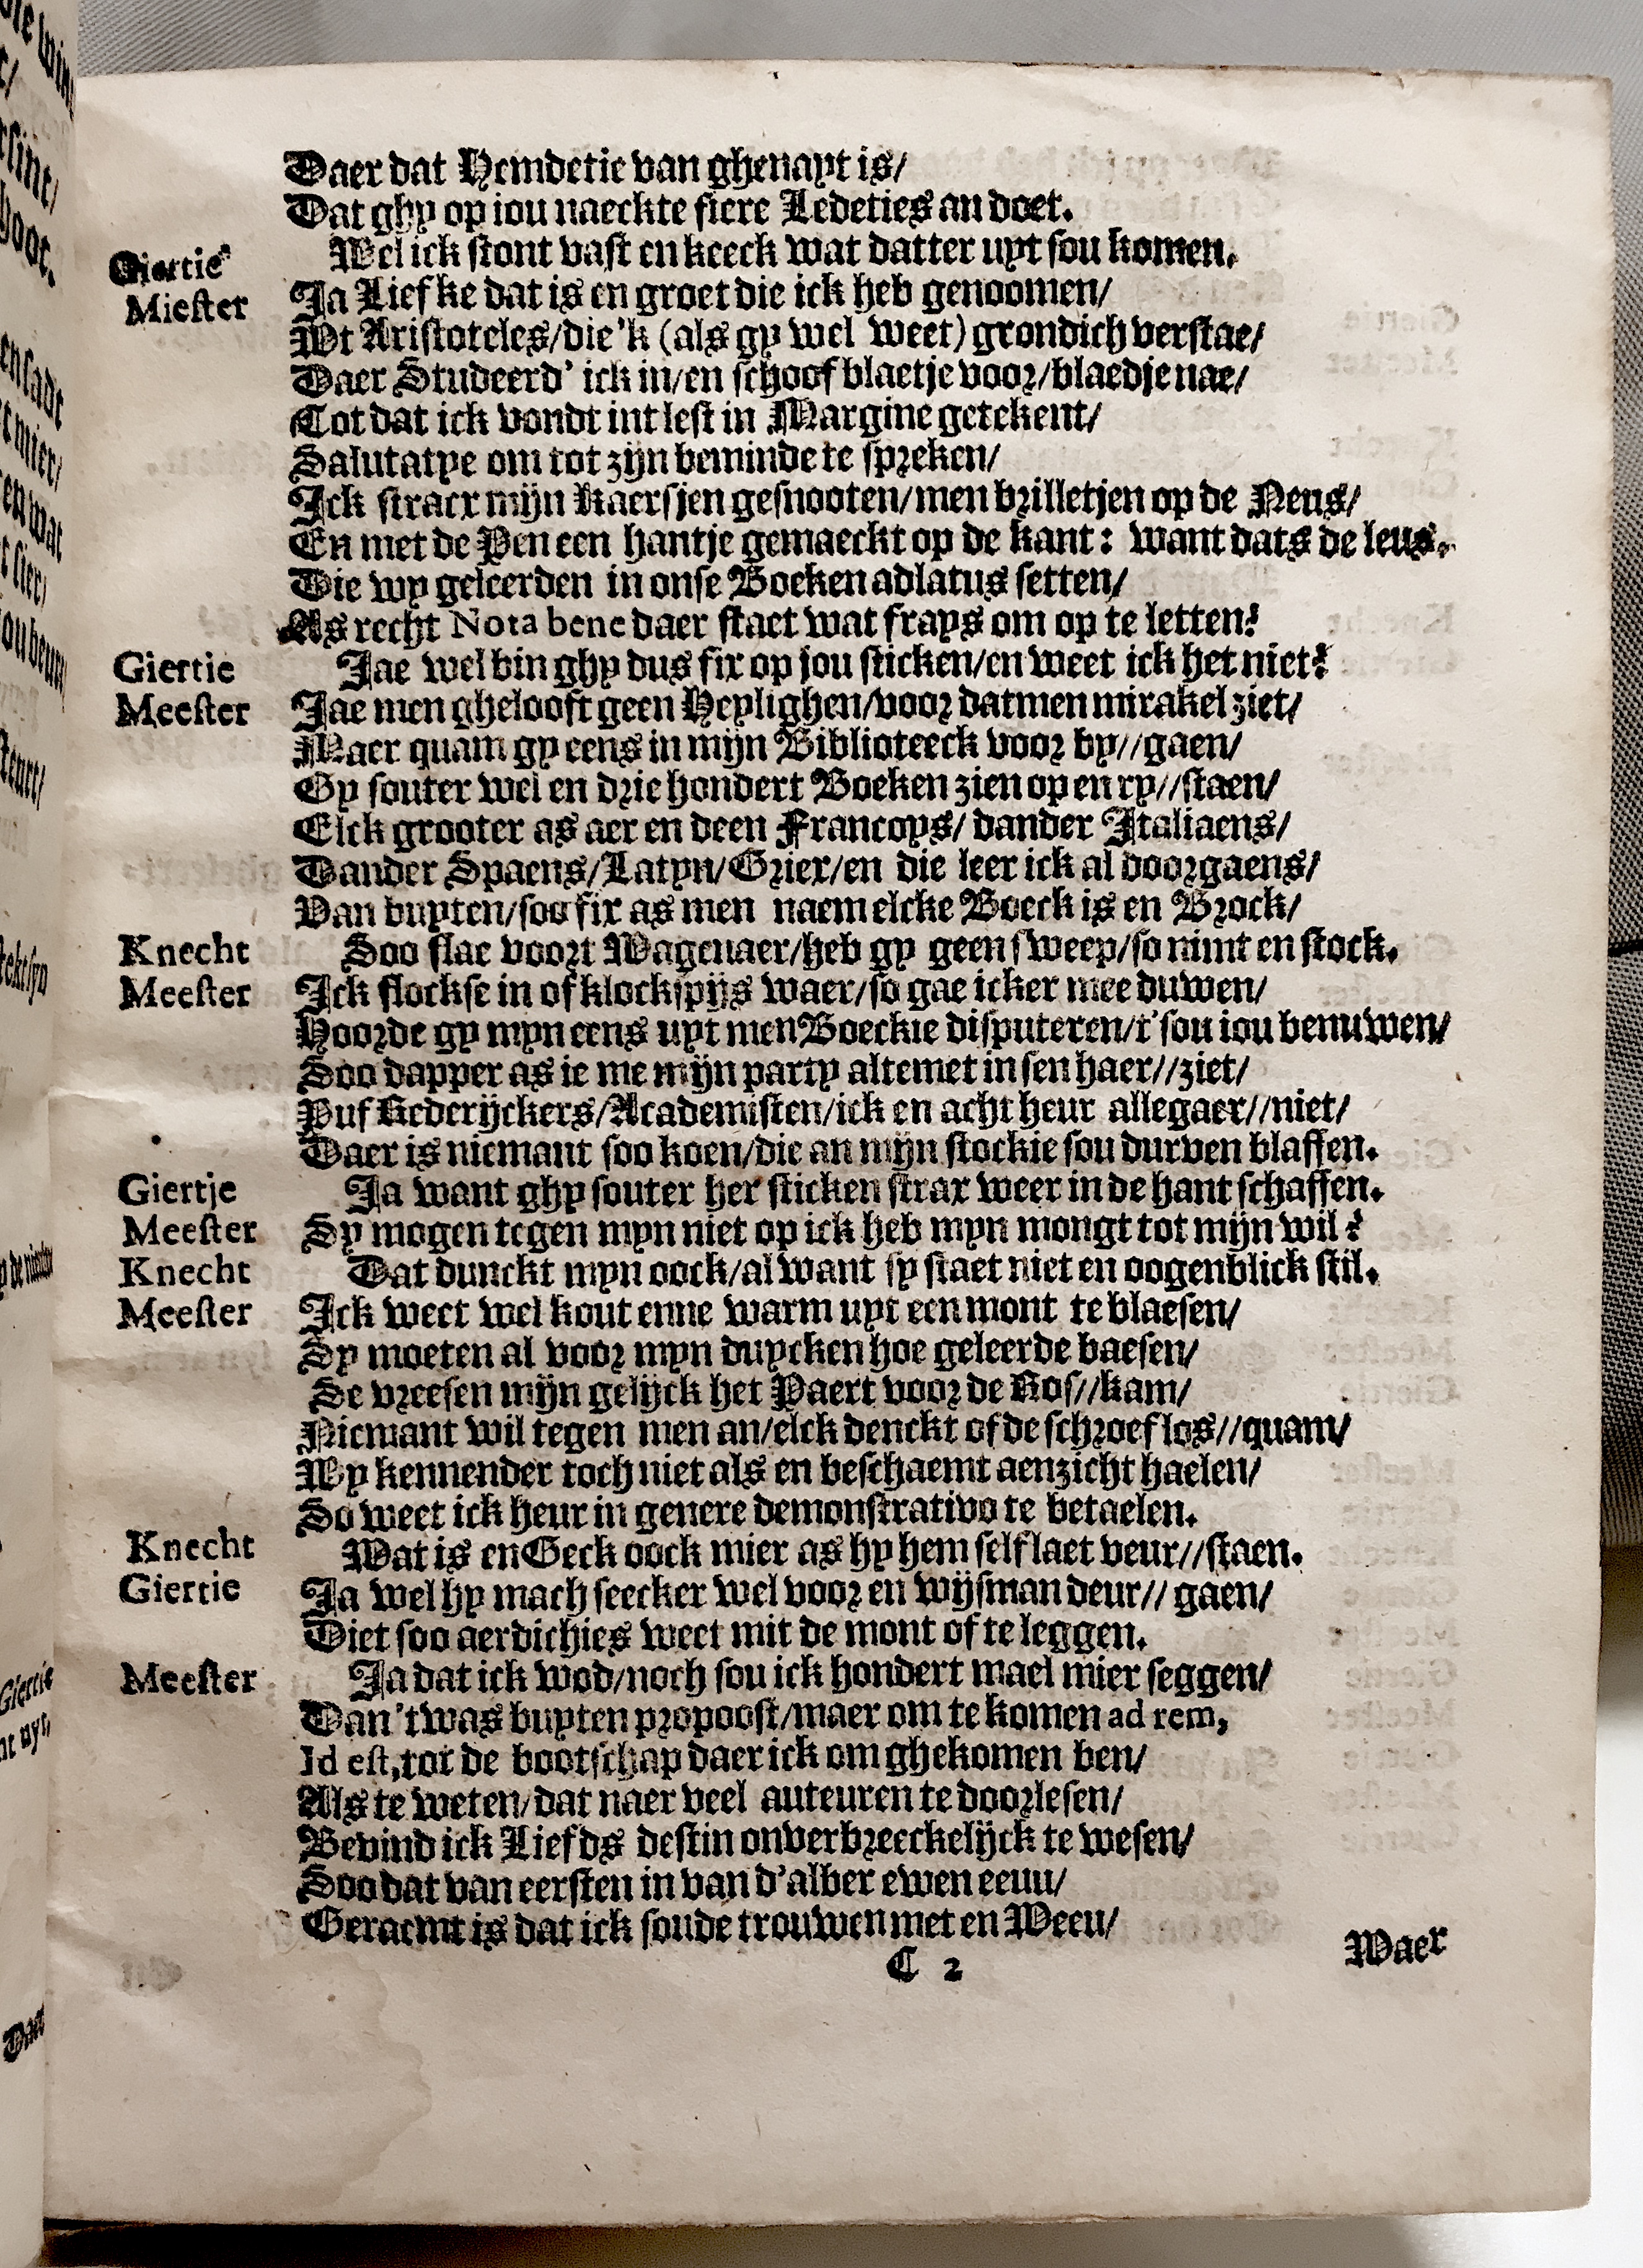 Daer dat Hemdetie van ghenayt is/
Dat ghy op iou naeckte fiere Ledeties an doet.
Giertie Wel ick stont vast en keeck wat datter uyt sou komen.
Miester Ja Liefke dat is en groet die ick heb genoomen/
Wt Aristoteles/die'k (als gy wel weet) grondich verstae/
Daer Studeerd' ick in/en schoof blaetje voor/blaedje nae/
Tot dat ick vondt int lest in Margine getekent/
Salutatye om tot zijn beminde te spreken/
Ick stracx mijn Kaersjen gesnooten/men brilletjen op de Neus/
En met de Pen een hantje gemaeckt op de kant: want dats de leus.
Die wy geleerden in onse Boeken adlatus setten/
As recht Nota bene daer staet wat frays om op te letten!
Giertie Jae wel bin ghy dus fix op jou sticken/en weet ick het niet?
Meester Jae men ghelooft geen Heylighen/voor datmen mirakel ziet/
Maer quam gy eens in mijn Biblioteeck voor by//gaen/
Gy souter wel en drie hondert Boeken zien op en ry//staen/
Elck grooter as aer en deen Francoys/ dander Italiaens/
Dander Spaens/Latyn/Griex/en die leer ick al doorgaens/
Van buyten/soo fix as men naem elcke Boeck is en Brock/
Knecht Soo slae voort Wagenaer/heb gy geen sweep/so nimt en stock.
Meester Ick slockse in of klockspijs waer/so gae icker mee duwen/
Hoorde gy myn eens uyt men Boeckie disputeren/t'sou iou benuwen/
Soo dapper as ie me mijn party altemet in sen haer//ziet/
Puf Rederijckers/Academisten/ick en acht heur allegaer//niet/
Daer is niemant soo koen/die an mijn stockie sou durven blaffen.
Giertje Ja want ghy souter her sticken strax weer in de hant schaffen.
Meester Sy mogen tegen myn niet op ick heb myn mongt tot mijn wil?
Knecht Dat dunckt myn oock/al want sy staet niet en oogenblick stil.
Meester Ick weet wel kout enne warm uyt een mont te blaesen/
Sy moeten al voor myn duycken hoe geleerde baesen/
Se vreesen mijn gelijck het Paert voor de Ros//kam/
Niemant wil tegen men an/elck denckt of de schroef los//quam/
Wy kennender toch niet als en beschaemt aenzicht haelen/
So weet ick heur in genere demonstrativo te betaelen.
Knecht Wat is en Geck oock mier as hy hem self laet veur//staen.
Giertie Ja wel hy mach seecker wel voor en wijsman deur// gaen/
Diet soo aerdichies weet mit de mont of te leggen.
Meester Ja dat ick wod/noch sou ick hondert mael mier seggen/
Dan 't was buyten propoost/maer om te komen ad rem,
Id est, tot de bootschap daer ick om ghekomen ben/
Als te weten/dat naer veel auteuren te doorlesen/
Bevind ick Liefds destin onverbreeckelijck te wesen/
Soo dat van eersten in van d'alder ewen eeuu/
Geraemt is dat ick soude trouwen met en Weeu/
C 2
Waer